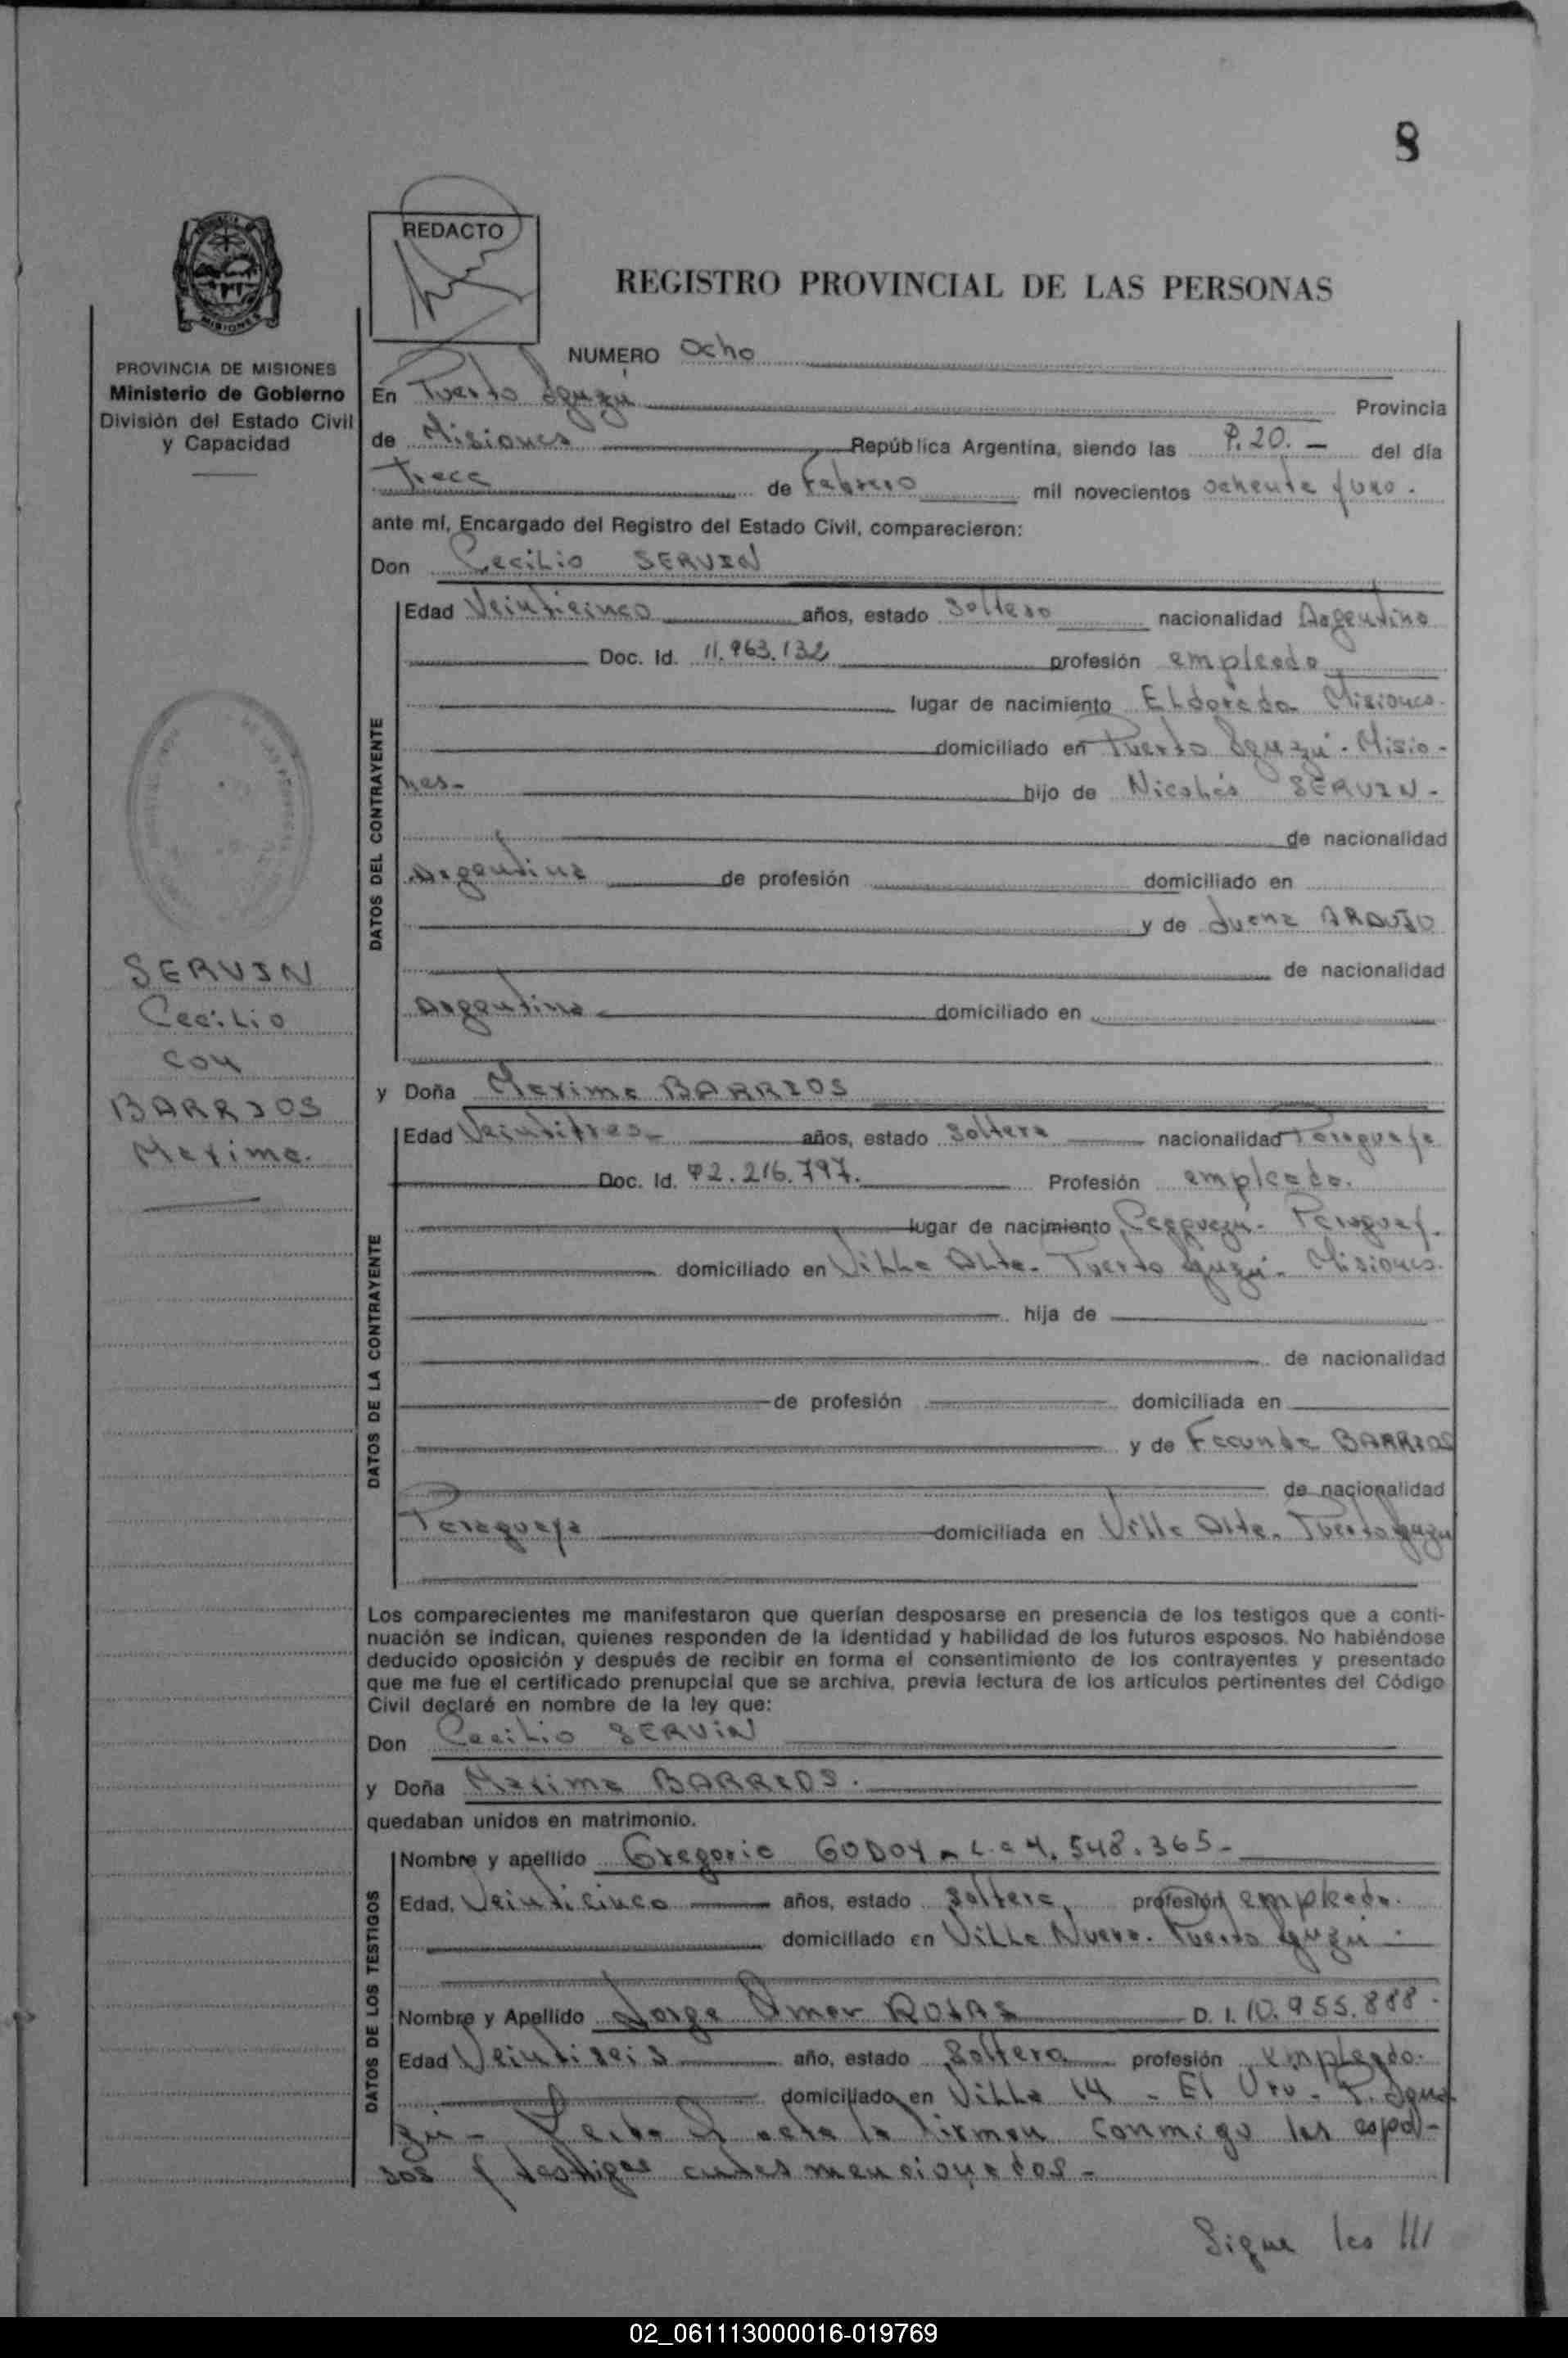 8
REDACTO
REGISTRO PROVINCIAL DE LAS PERSONAS
MISIONES
PROVINCIA DE MISIONES
Ministerio de Gobierno
División del Estado Civil
y Capacidad
SERVIN
Cecilio
con
BARRIOS
Maxima.
NUMERO Ocho
En Puerto Iguazú Provincia
de Misiones República Argentina, siendo las 9.20.- del día
Trece de Febrero mil novecientos ochenta y uno.
ante mí, Encargado del Registro del Estado Civil, comparecieron:
Don Cecilio SERVIN
DATOS DEL CONTRAYENTE
Edad Veinticinco años, estado soltero nacionalidad Argentina
Doc. Id. 11.963.132 profesión empleado
lugar de nacimiento Eldorado Misiones-
domiciliado en Puerto Iguazú - Misio-
nes- hijo de Nicolás SERVIN-
de nacionalidad
Argentina de profesión domiciliado en
y de Juana ARAUJO
de nacionalidad
Argentina domiciliado en
y Doña Maxima BARRIOS
DATOS DE LA CONTRAYENTE
Edad Veintitres- años, estado soltera nacionalidad Paraguaya
Doc. Id. 92.216.797. Profesión empleada.
lugar de nacimiento Caaguazú- Paraguay.
domiciliado en Villa Alta- Puerto Iguazú- Misiones.
hija de
de nacionalidad
de profesión domiciliada en
y de Facunda BARRIOS
de nacionalidad
Paraguaya domiciliada en Villa Alta- Puerto Iguazú
Los comparecientes me manifestaron que querían desposarse en presencia de los testigos que a conti-
nuación se indican, quienes responden de la identidad y habilidad de los futuros esposos. No habiéndose
deducido oposición y después de recibir en forma el consentimiento de los contrayentes y presentado
que me fue el certificado prenupcial que se archiva, previa lectura de los artículos pertinentes del Código
Civil declaré en nombre de la ley que:
Don Cecilio SERVIN
y Doña Maxima BARRIOS.
quedaban unidos en matrimonio.
DATOS DE LOS TESTIGOS
Nombre y apellido Gregoria GODOY - 4.548.365-
Edad, Veinticinco años, estado soltera, profesión empleada.
domiciliado en Villa Nueva. Puerto Iguazú -
Nombre y Apellido Jorge Omar ROJAS D. I. 10.955.888.
Edad Veintiseis año, estado soltero profesión empleado.
domiciliado en Villa 14 - El Uru - P. Igua
zú- Leida el acta la firman conmigo los espo-
sos y testigos antes mencionados-
Sigue los ///
02_061113000016-019769